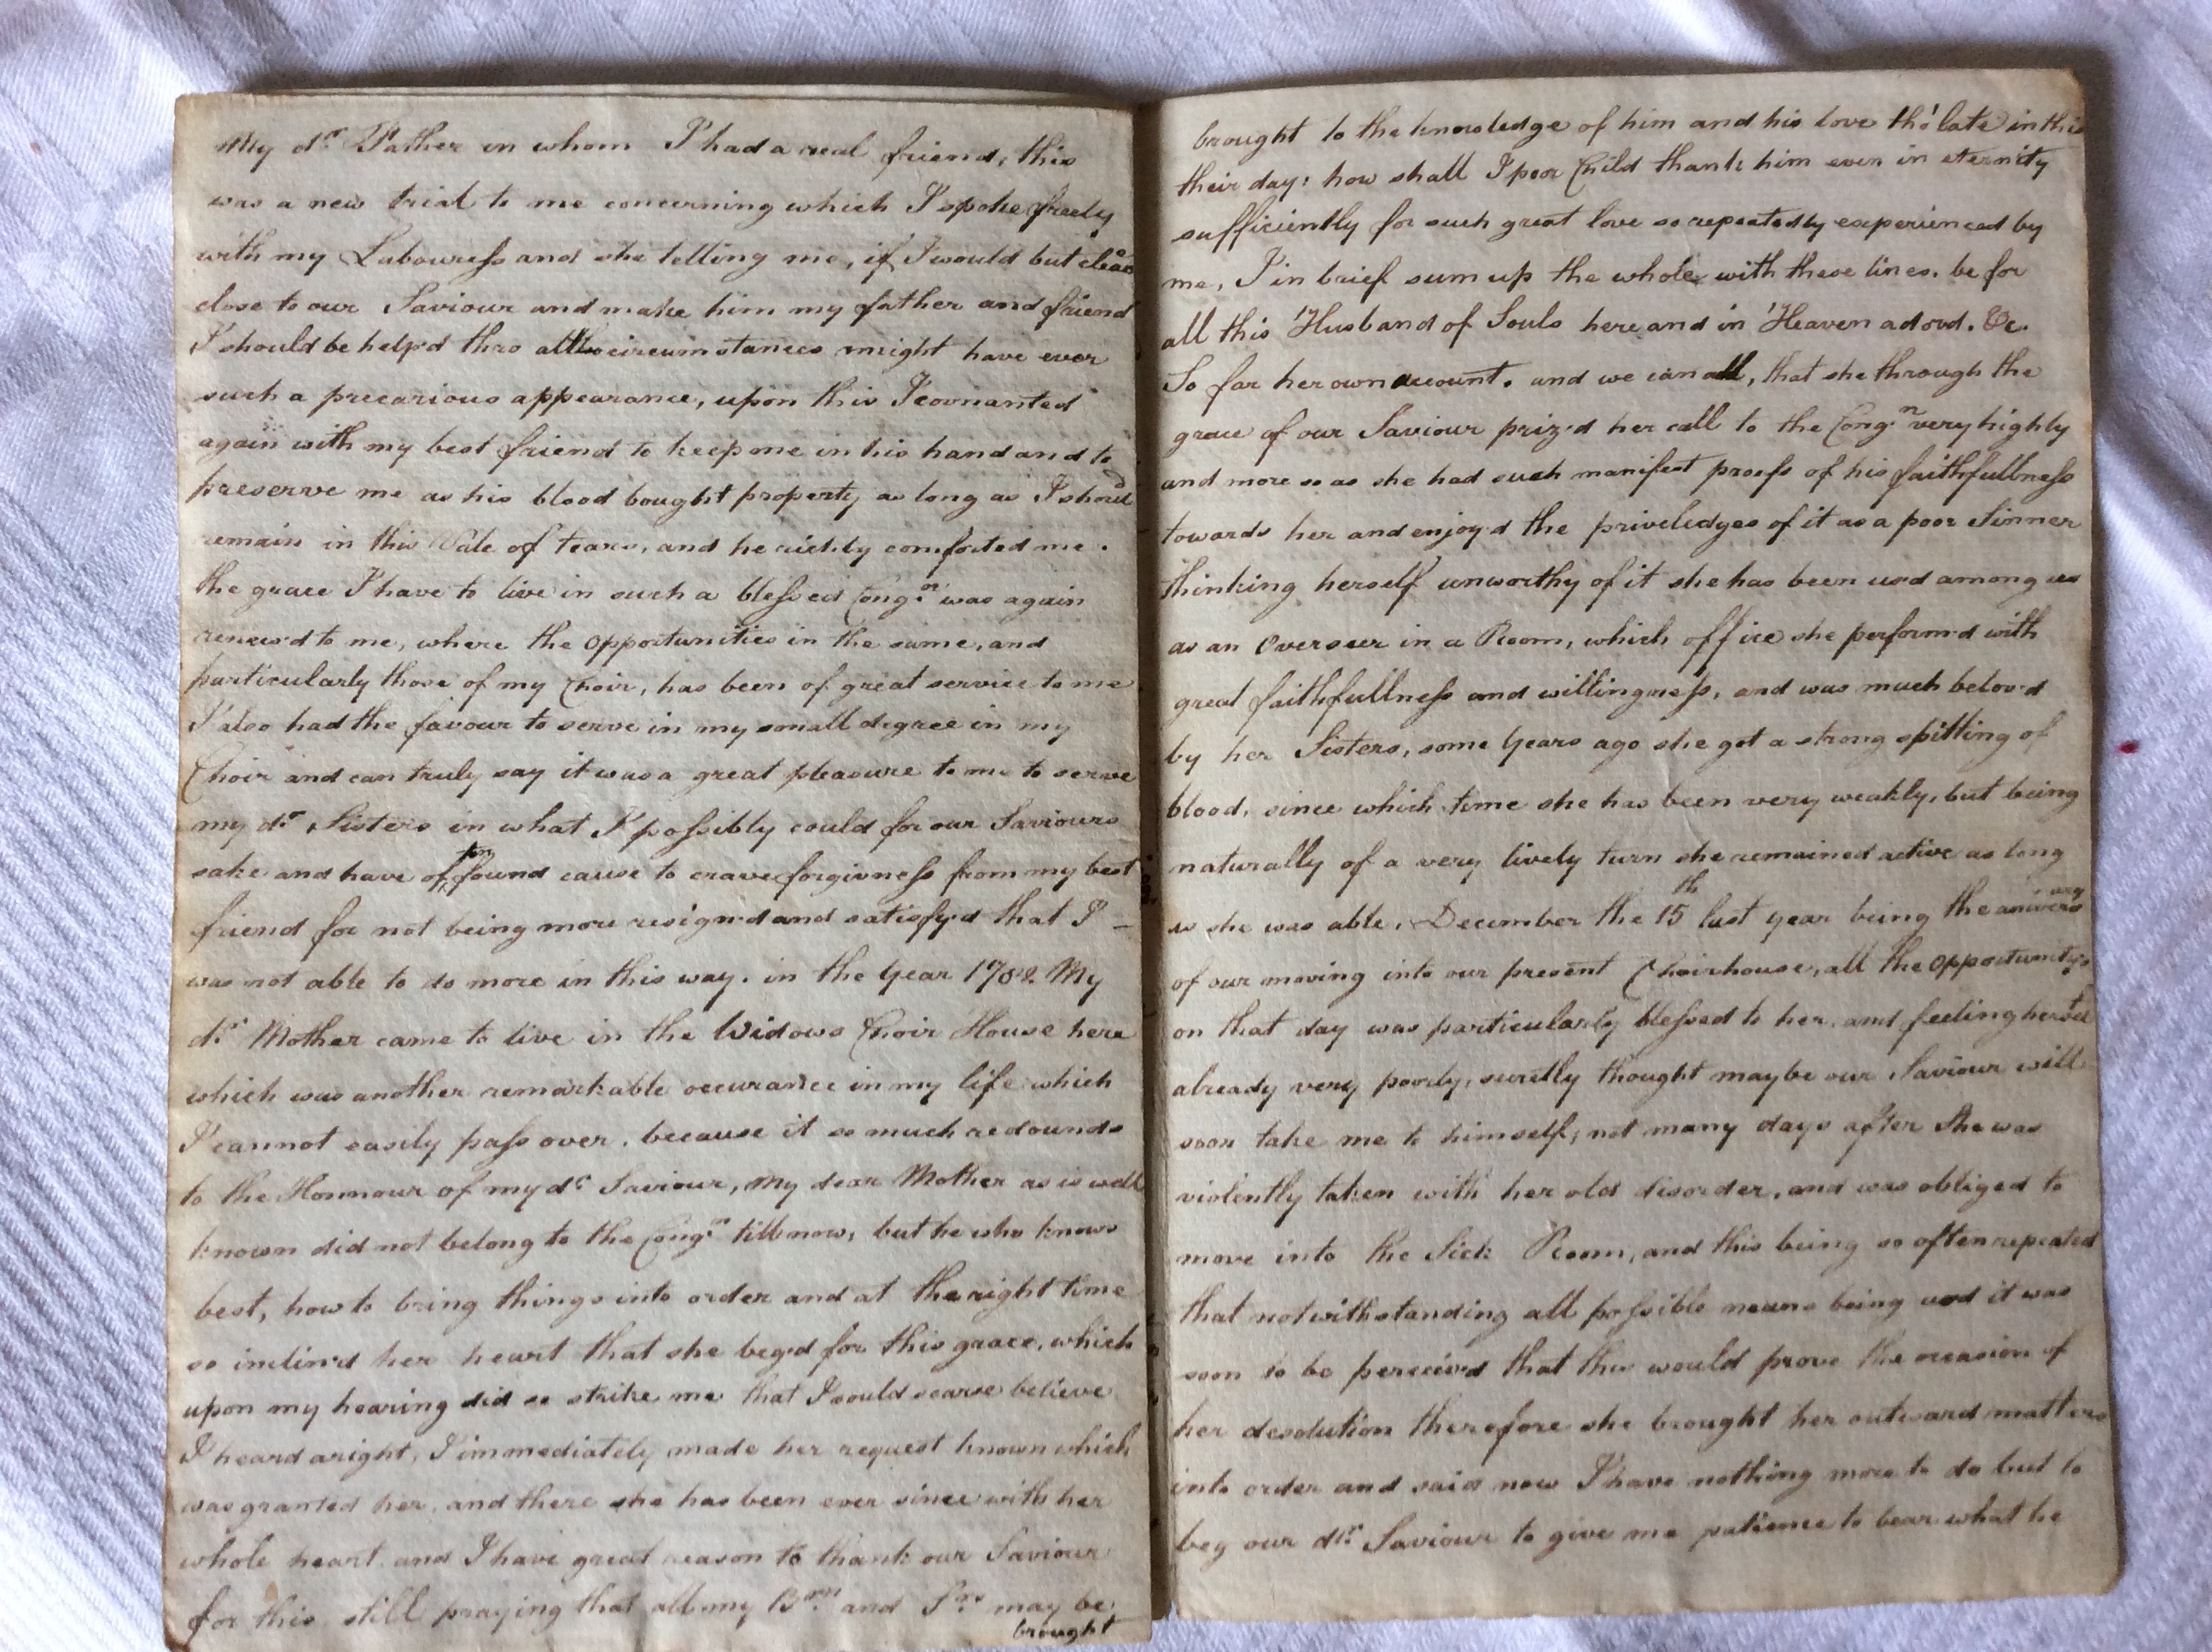 My d.r Father in whom I had a real friend, this
was a new trial to me concerning which I spoke freely
with my Labouress and she telling me, if I would but cleave
close to our Saviour and make him my father and friend
I should be help'd thro all the circumstances might have ever
such a precarious appearance, upon this I covnanted
again with my best friend to keep me in his hand and to
preserve me as his blood bought property as long as I should
remain in this Vale of tears, and he richly comforted me.
the grace I have to live in such a blessed Cong.on was again
renew'd to me, where the opportunities in the same, and
particularly those of my Choir, has been of great service to me
I also had the favour to serve in my small degree in my
Choir and can truly say it was a great pleasure to me to serve
my d.r Sisters in what I possibly could for our Saviours
sake and have often found cause to crave forgivness from my best
friend for not being more resign'd and satisfy'd that I –
was not able to do more in this way. in the Year 1782 My
d.r Mother came to live in the Widows Choir House here
which was another remarkable occurance in my life which
I cannot easily pass over, because it so much redounds
to the Honnour of my d.r Saviour, My dear Mother as is well
known did not belong to the Cong.n till now, but he who knows
best, how to bring things into order and at the right time
so inclin'd her heart that she beg'd for this grace, which
upon my hearing did so strike me that I could scarse believe
I heard aright, I immediately made her request known which
was granted her, and there she has been ever since with her
whole heart and I have great reason to thank our Saviour
for this, still praying that all my B.rn and S.rs may be
brought
brought to the knowledge of him and his love tho' late in this
their day: how shall I poor Child thank him even in eternity
sufficiently for such great love so repeatedly experienced by
me, I in brief sum up the whole with these lines. be for
all this Husband of Souls here and in Heaven adord. &c.
So far her own account. and we can add, that she through the
grace of our Saviour priz'd her call to the Cong.n very highly
and more so as she had such manifest proofs of his faithfullness
towards her and enjoy'd the priveledges of it as a poor Sinner
thinking herself unworthy of it she has been usd among us
as an Overseer in a Room, which office she perform'd with
great faithfullness and willingness, and was much belov'd
by her Sisters, some Years ago she got a strong spitting of
blood, since which time she has been very weakly, but being
naturally of a very lively turn she remained active as long
as she was able, December the 15th last year being the anivers ary
of our moving into our present Choirhouse, all the opportunitys
on that day was particularly blessed to her, and feeling herself
already very poorly, surelly thought maybe our Saviour will
soon take me to himself; not many days after she was
violently taken with her old disorder, and was obliged to
move into the Sick Room, and this being so often repeated
that notwithstanding all possible means being usd it was
soon to be perceiv'd that this would prove the occasion of
her desolution therefore she brought her outward matters
into order and said now I have nothing more to do but to
beg our d.r Saviour to give me patience to bear what he